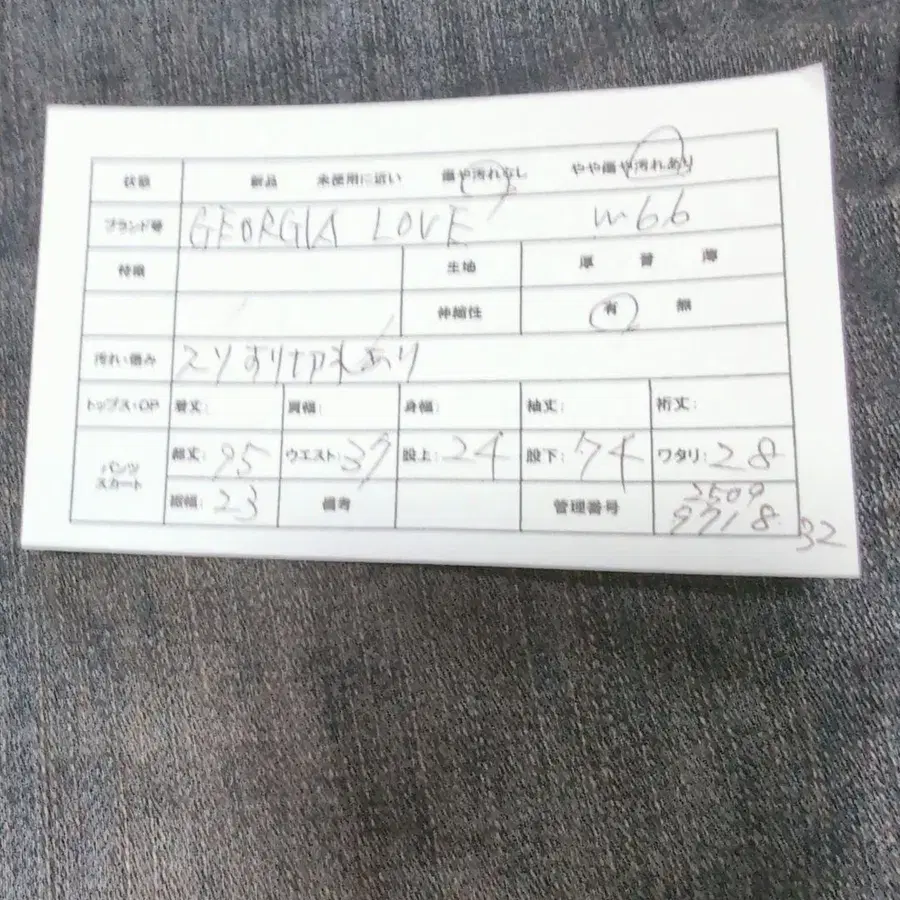 状態 新品 未使用に近い 傷や汚れなし やや傷や汚れあり
ブランド等 GEORGIA LOVE W66
特徴 生地 厚 普 薄
伸縮性 有 無
汚れ・傷み スソすり切れあり
トップス・OP 着丈: 肩幅: 身幅: 袖丈: 裄丈:
パンツ スカート 総丈: 95 ウエスト: 37 股上: 24 股下: 74 ワタリ: 28
裾幅: 23 備考 管理番号 2509
9718 32